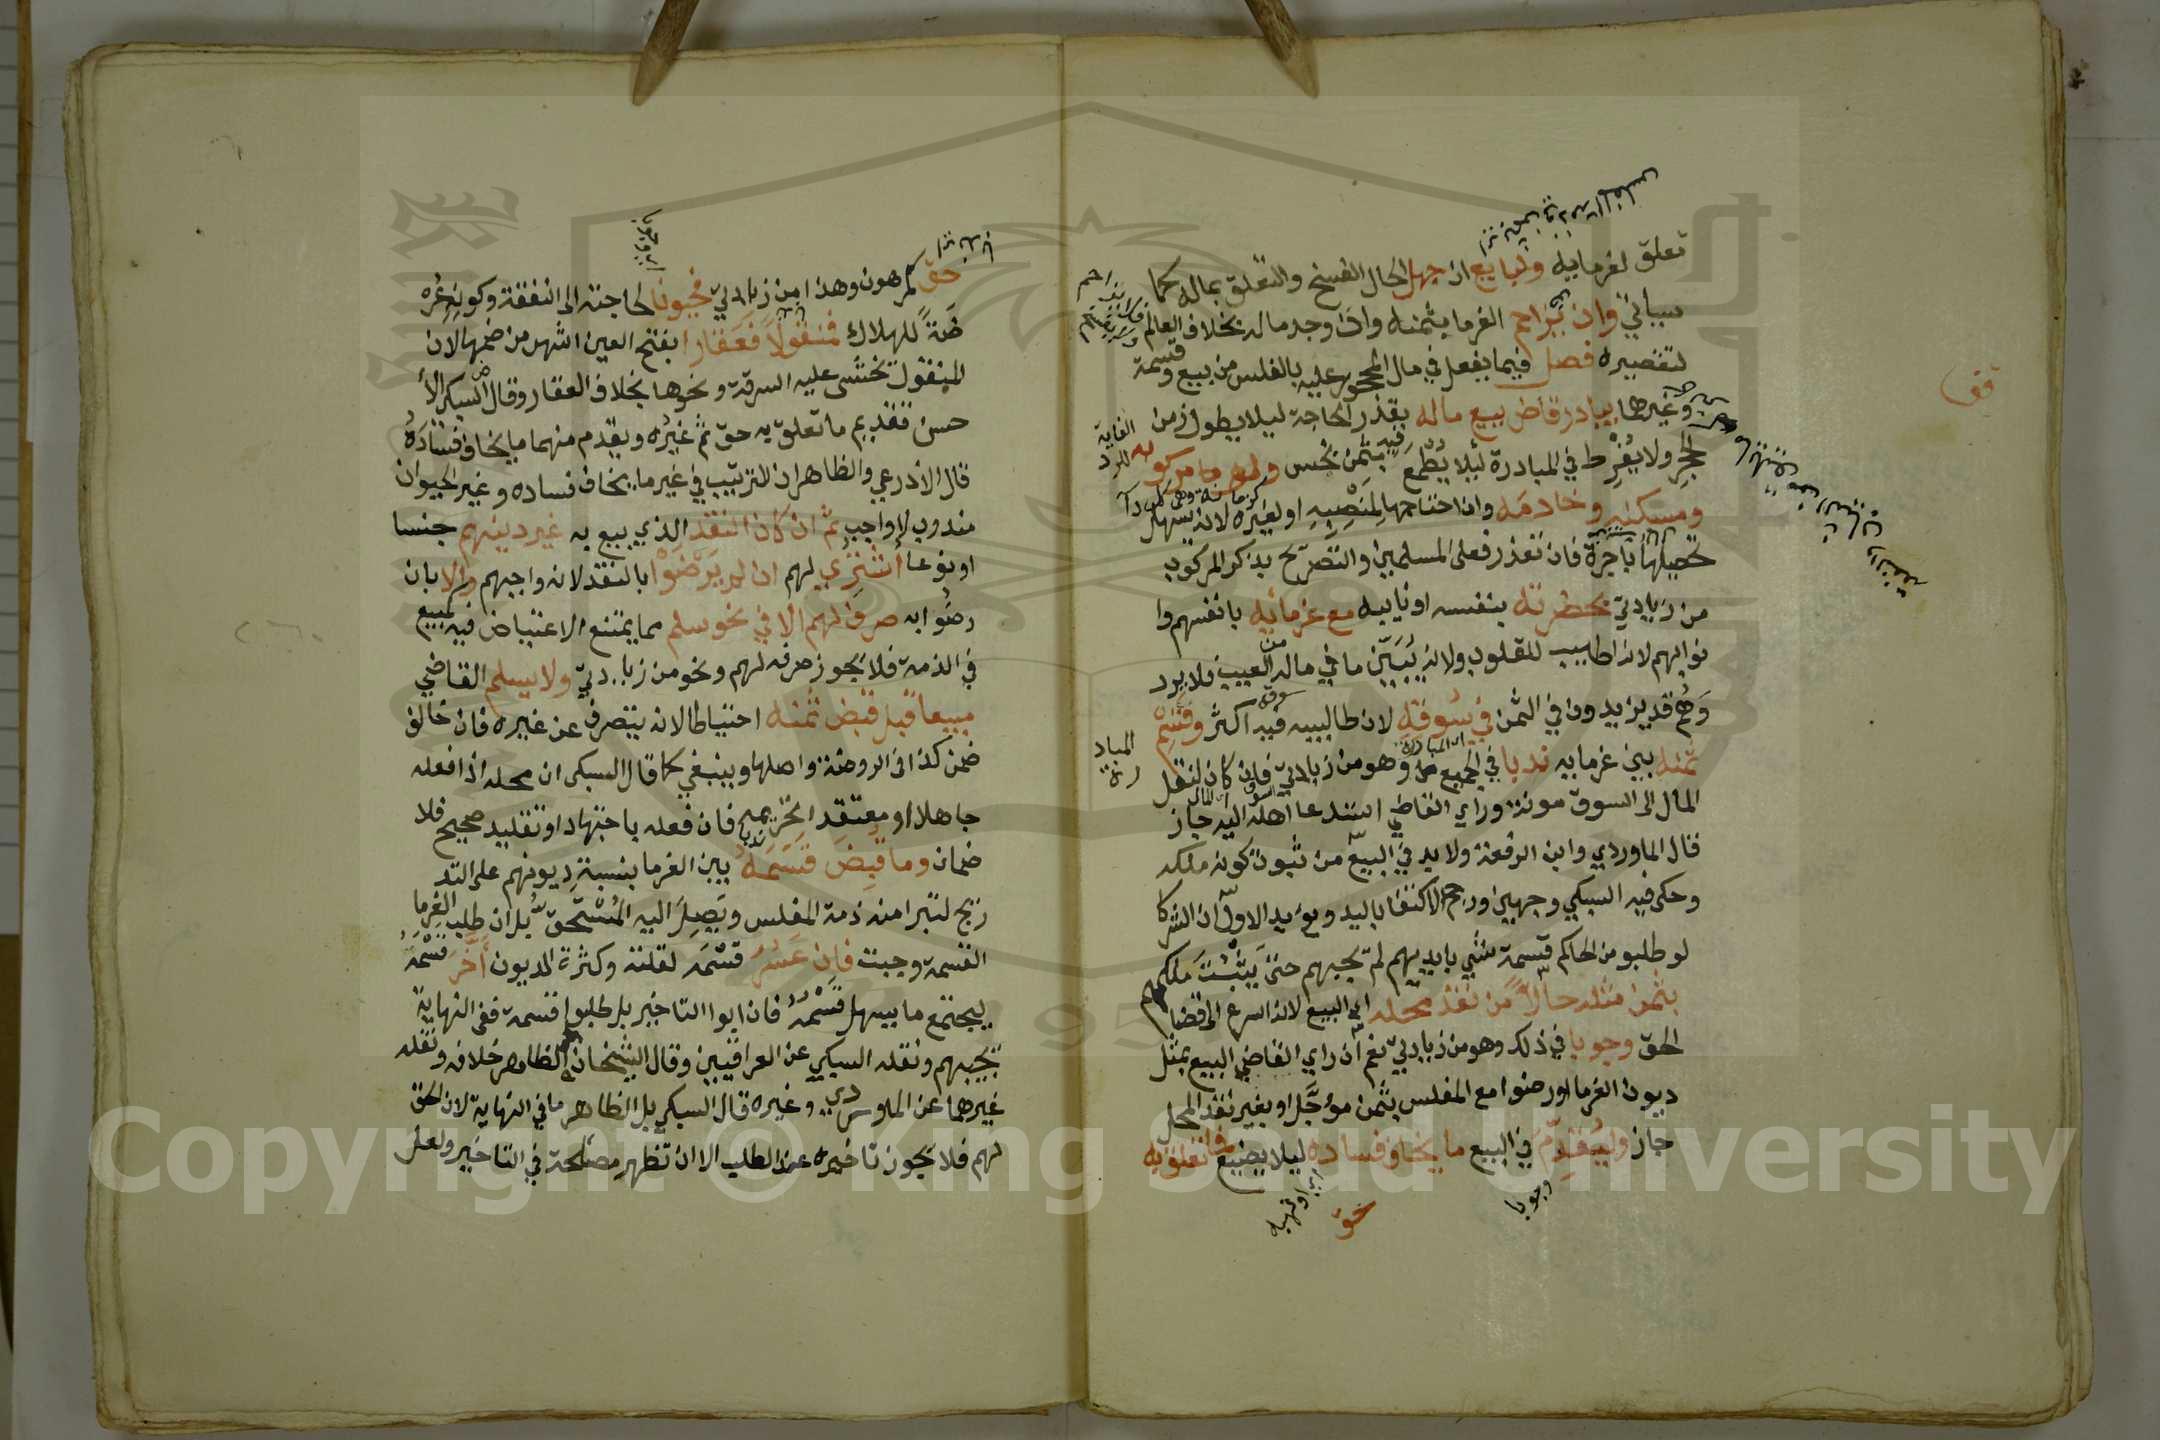 تعلق لغرمايه ولبايع ان جهل الحال الفسخ والتعلق بماله كما
سياتي وان يزاحم الغرما بثمنه وان وجد ماله بخلاف العالم
لتقصيره فصل فيما يفعل في مال المحجور عليه بالفلس من بيع وقسمة
وغيرهما يبادر قاض ببيع ماله بقدر الحاجة ليلا يطول زمن
الحجر ولا يفرط في المبادرة ليلا يطمع فيه بثمن بخس ولو مركوبه
ومسكنه وخادمه وان احتاجها لمنصبه او لغيره لانه يسهل
تحصيلها باجرة فان تعذر فعلى المسلمين والتصريح بذكر المركوب
من زيادتي بحضرته بنفسه او نايبه مع غرمائه بانفسهم وا
نوابهم لانه اطيب للقلوب ولانه يبين ما في ماله من العيب فلا يرد
وهم قد يزيدون في الثمن في سوقه لان طالبيه فيه اكثر وقسم
ثمنه بين غرمايه ندبا في الجميع وهو من زيادتي فان كان لنقل
المال الى السوق مونة وراي القاضي استدعا اهله اليه جاز
قال الماوردي وابن الرفعة ولا بد في البيع من ثبوت كونه ملكه
وحكى فيه السبكي وجهين ورجح الاكتفا باليد ويؤيد الاول ان الشركا
لو طلبو من الحاكم قسمة شي بايديهم لم يجبهم حتى يثبت ملكهم
بثمن مثله حالا من نقد محله اي البيع لانه اسرع الى قضا
الحق وجوبا في ذلك وهو من زيادتي نعم ان راي القاضي البيع بمثل
ديون الغرما او رضوا مع المفلس بثمن مؤجل او بغير نقد المحل
جاز وليقدم في البيع ما يخاف فساده ليلا يضيع فما تعلق به
وجوبا
حق
قف
المباد
رة
حق كمرهون وهذا من زيادتي فحيوانا لحاجته الى النفقة وكونه عر
ضة للهلاك فمنقولا فعقارا بفتح العين اشهر من ضمها لان
المنقول يخشى عليه السرقة ونحوها بخلاف العقار وقال السبكي الا
حسن تقديم ما تعلق به حق ثم غيره ويقدم منهما ما يخاف فساده
قال الاذرعي والظاهر ان الترتيب في غير ما يخاف فساده وغير الحيوان
مندوب لا واجب ثم ان كان النقد الذي بيع به غير دينهم جنسا
او نوعا اشتري لهم ان لم يرضوا بالنقد لانه واجبهم والا بان
رضوا به صرف لهم الا في نحو سلم مما يمتنع الاعتياض فيه كمبيع
في الذمة فلا يجوز صرفه لهم ونحو من زيادتي ولا يسلم القاضي
مبيعا قبل قبض ثمنه احتياطا لانه يتصرف عن غيره فان خالف
ضمن كذا في الروضة واصلها وينبغي كما قال السبكي ان محله اذا فعله
جاهلا او معتقدا تحريمه فان فعله باجتهاد او تقليد صحيح فلا
ضمان وما قبض قسمه بين الغرما بنسبة ديونهم على التد
ريج لتبرا منه ذمة المفلس ويصل اليه المستحق بل ان طلب الغرما
القسمة وجبت فان عسر قسمه لقلته وكثرة الديون اخر قسمه
ليجتمع ما يسهل قسمه فان ابوا التاخير بل طلبوا قسمة ففي النهاية
يجيبهم ونقله السبكي عن العراقيين وقال الشيخان الظاهر خلافه ونقله
غيرهما عن الماوردي وغيره قال السبكي بل الظاهر ما في النهاية لان الحق
لهم فلا يجوز تاخيره عند الطلب الا ان تظهر مصلحة في التاخير ولعل
Copyright © King Saud University
1957